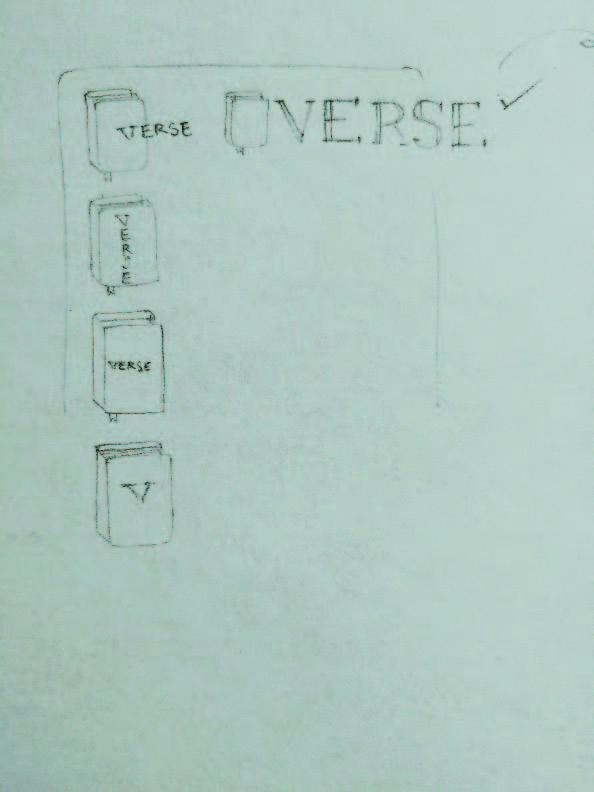 VERSE
VERSE
VERSE
VERSE
V